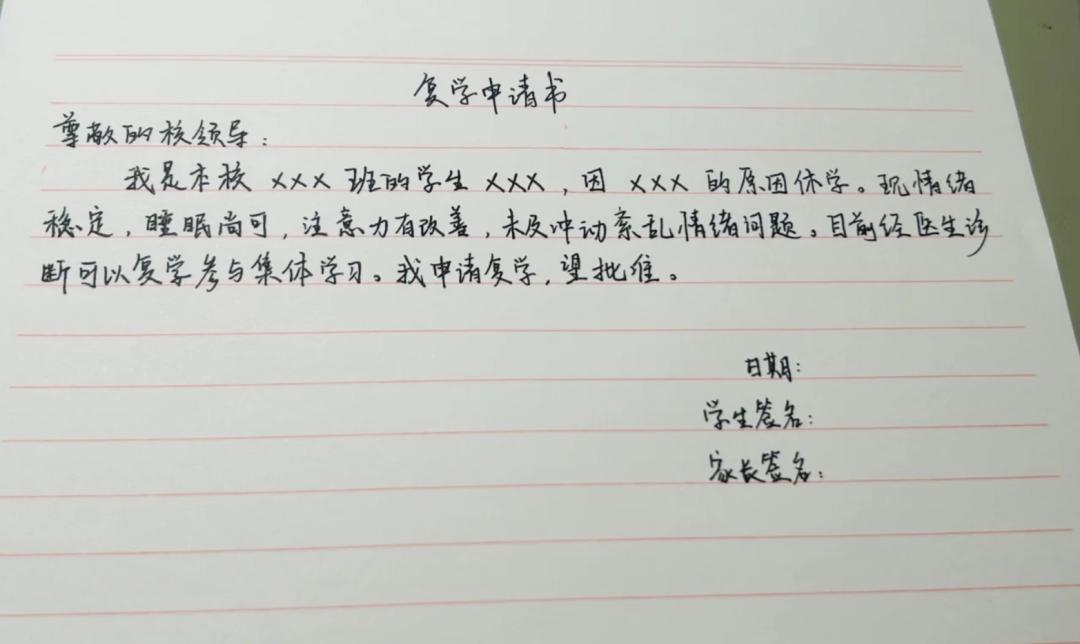 复学申请书
尊敬的校领导：
我是本校 XXX 班的学生 XXX，因 XXX 的原因休学。现情绪
稳定，睡眠尚可，注意力有改善，未及冲动紊乱情绪问题。目前经医生诊
断可以复学参与集体学习。我申请复学，望批准。
日期：
学生签名：
家长签名：